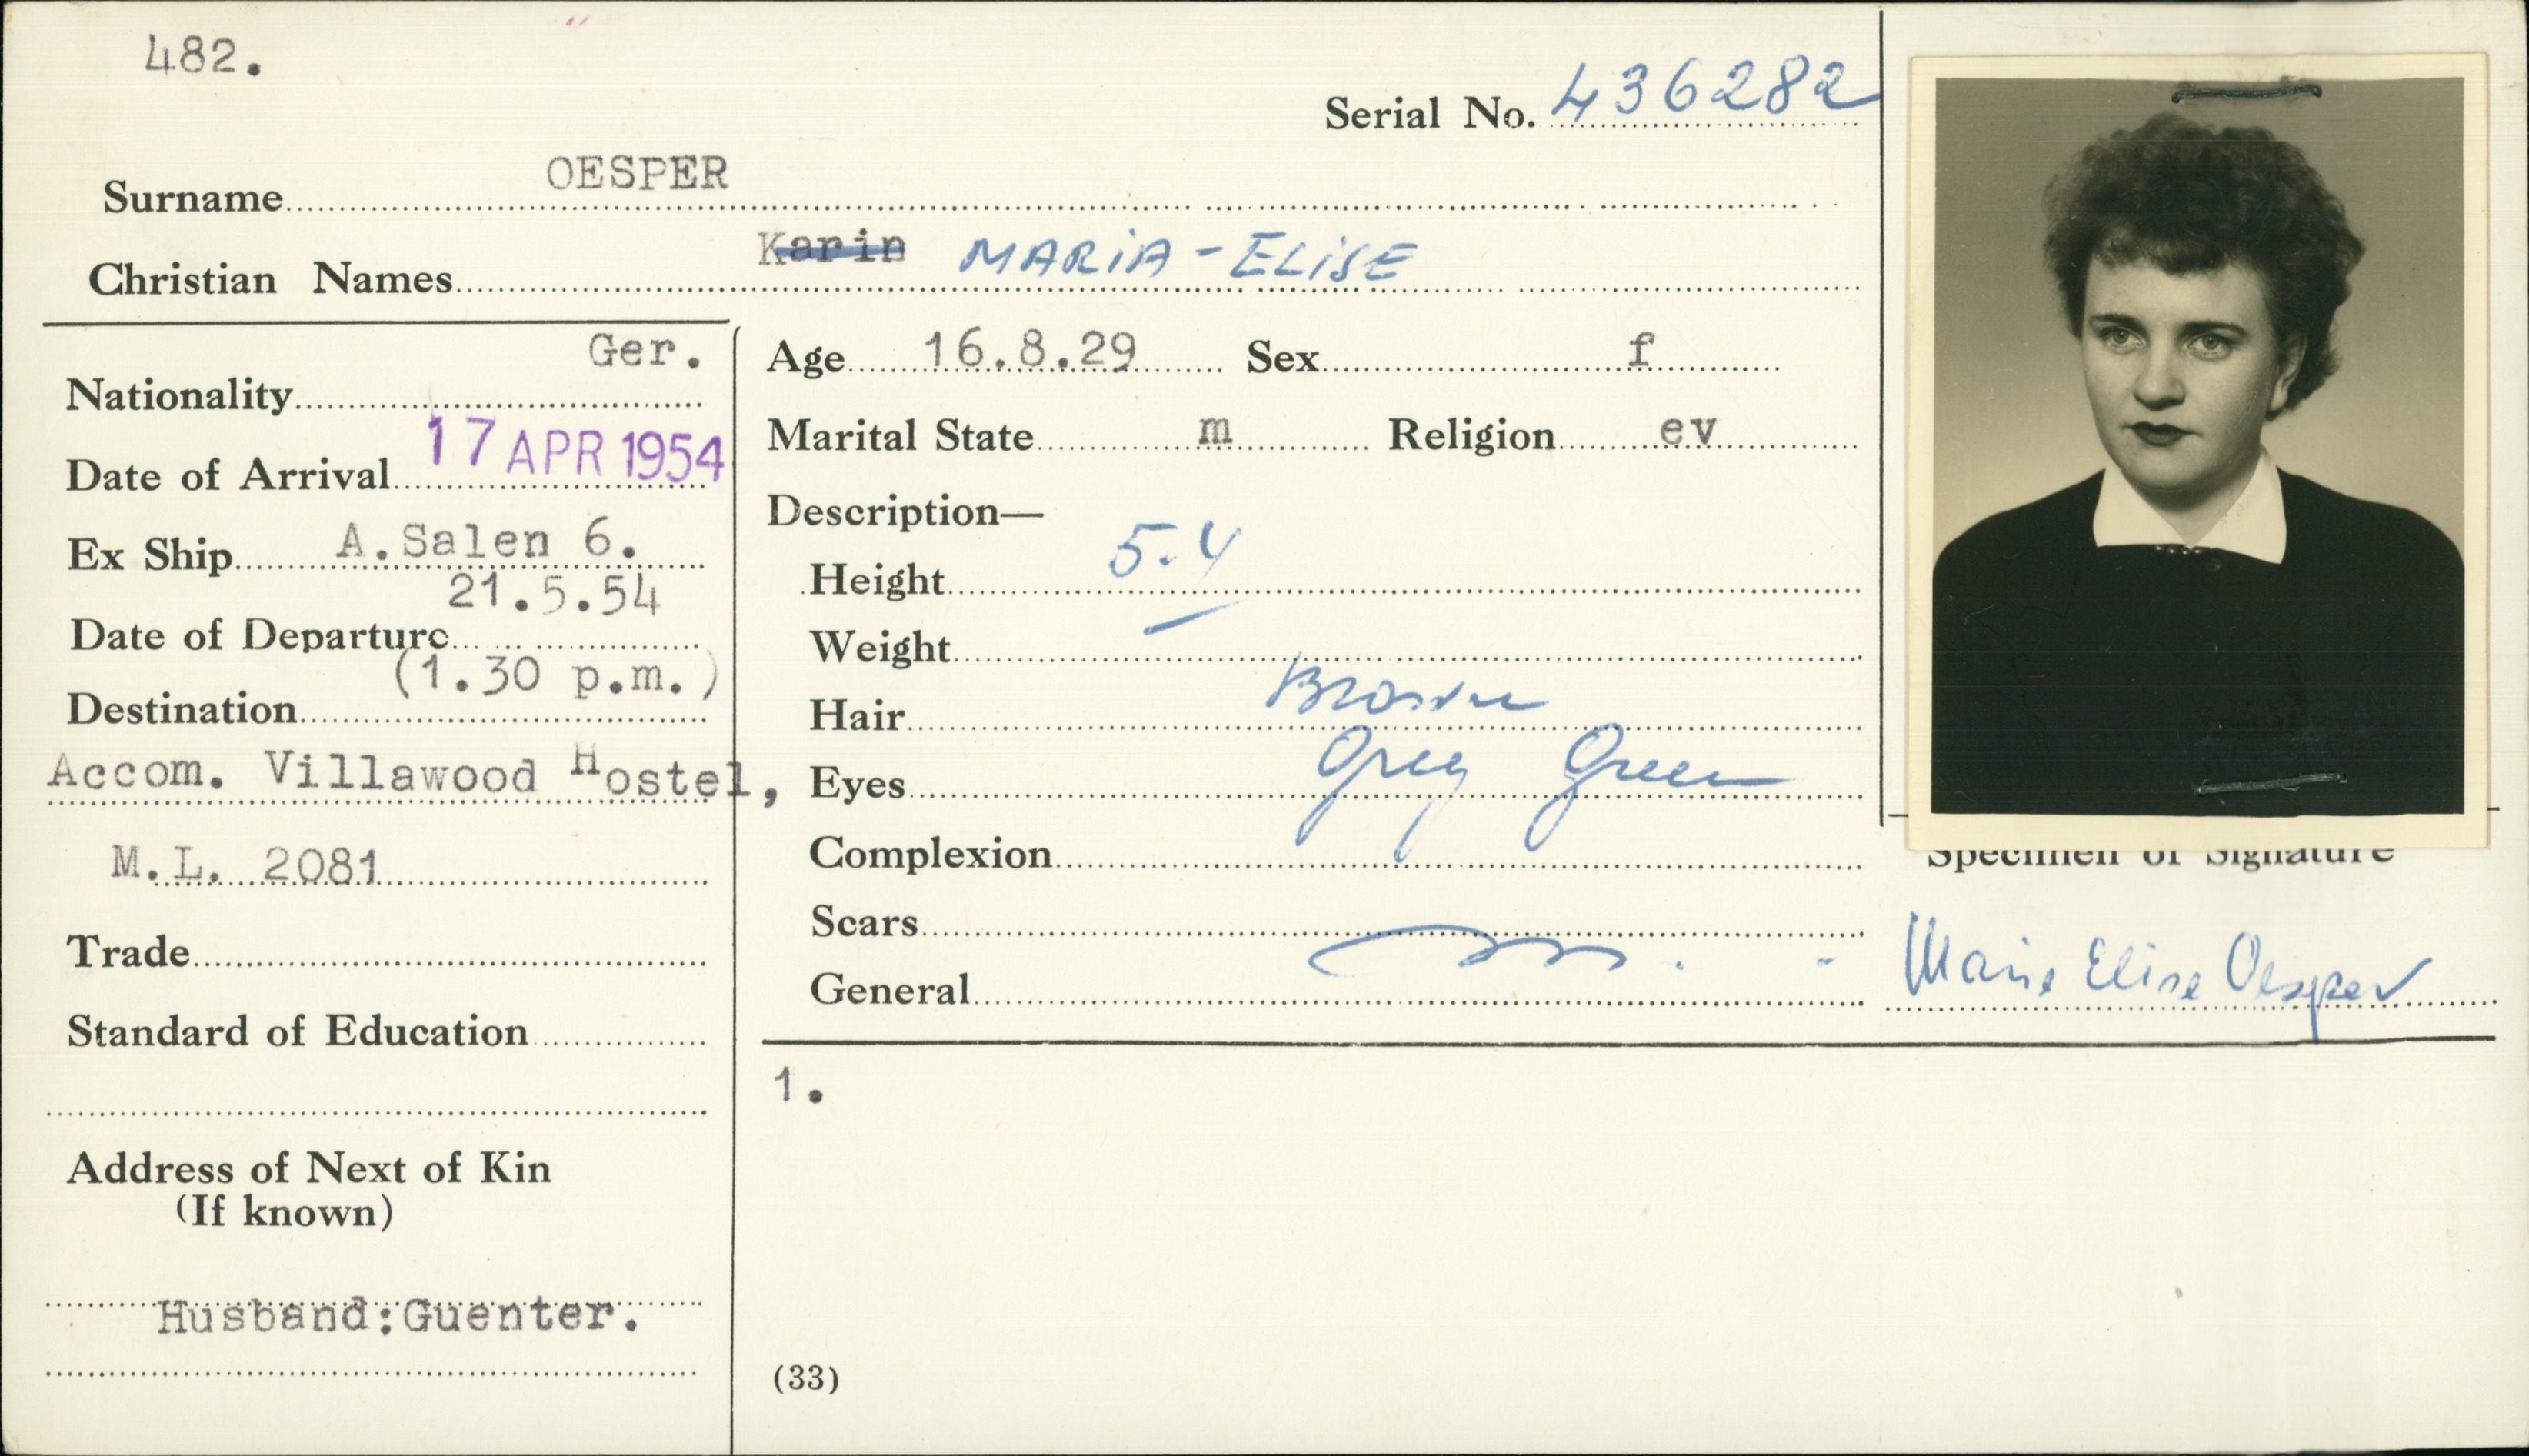 482.
Serial No. 436282
Surname OESPER
Christian Names Karin MARIA-ELISE
Nationality Ger.
Date of Arrival 17 APR 1954
Ex Ship A.Salen 6.
Date of Departure 21.5.54
(1.30 p.m.)
Destination
Accom. Villawood Hostel,
M.L. 2081
Trade
Standard of Education
Address of Next of Kin
(If known)
Husband:Guenter.
Age 16.8.29 Sex f
Marital State m Religion ev
Description—
Height 5.4
Weight
Hair Brown
Eyes Grey Green
Complexion
Scars
General
Specimen of Signature
Marie Elise Oesper
1.
(33)